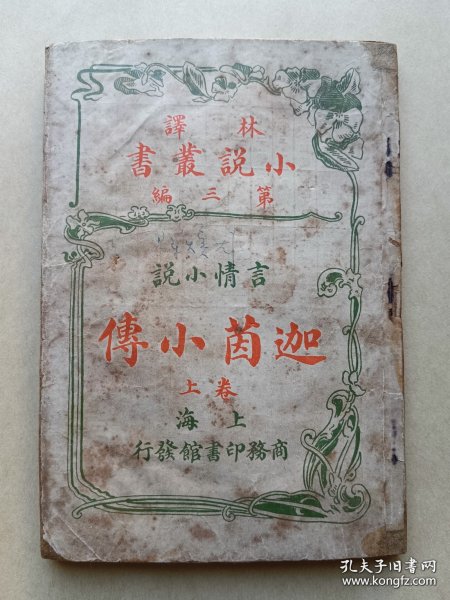 林譯
小說叢書
第三編
言情小說
迦茵小傳
卷上
上海
商務印書館發行
孔夫子旧书网
www.kongfz.com